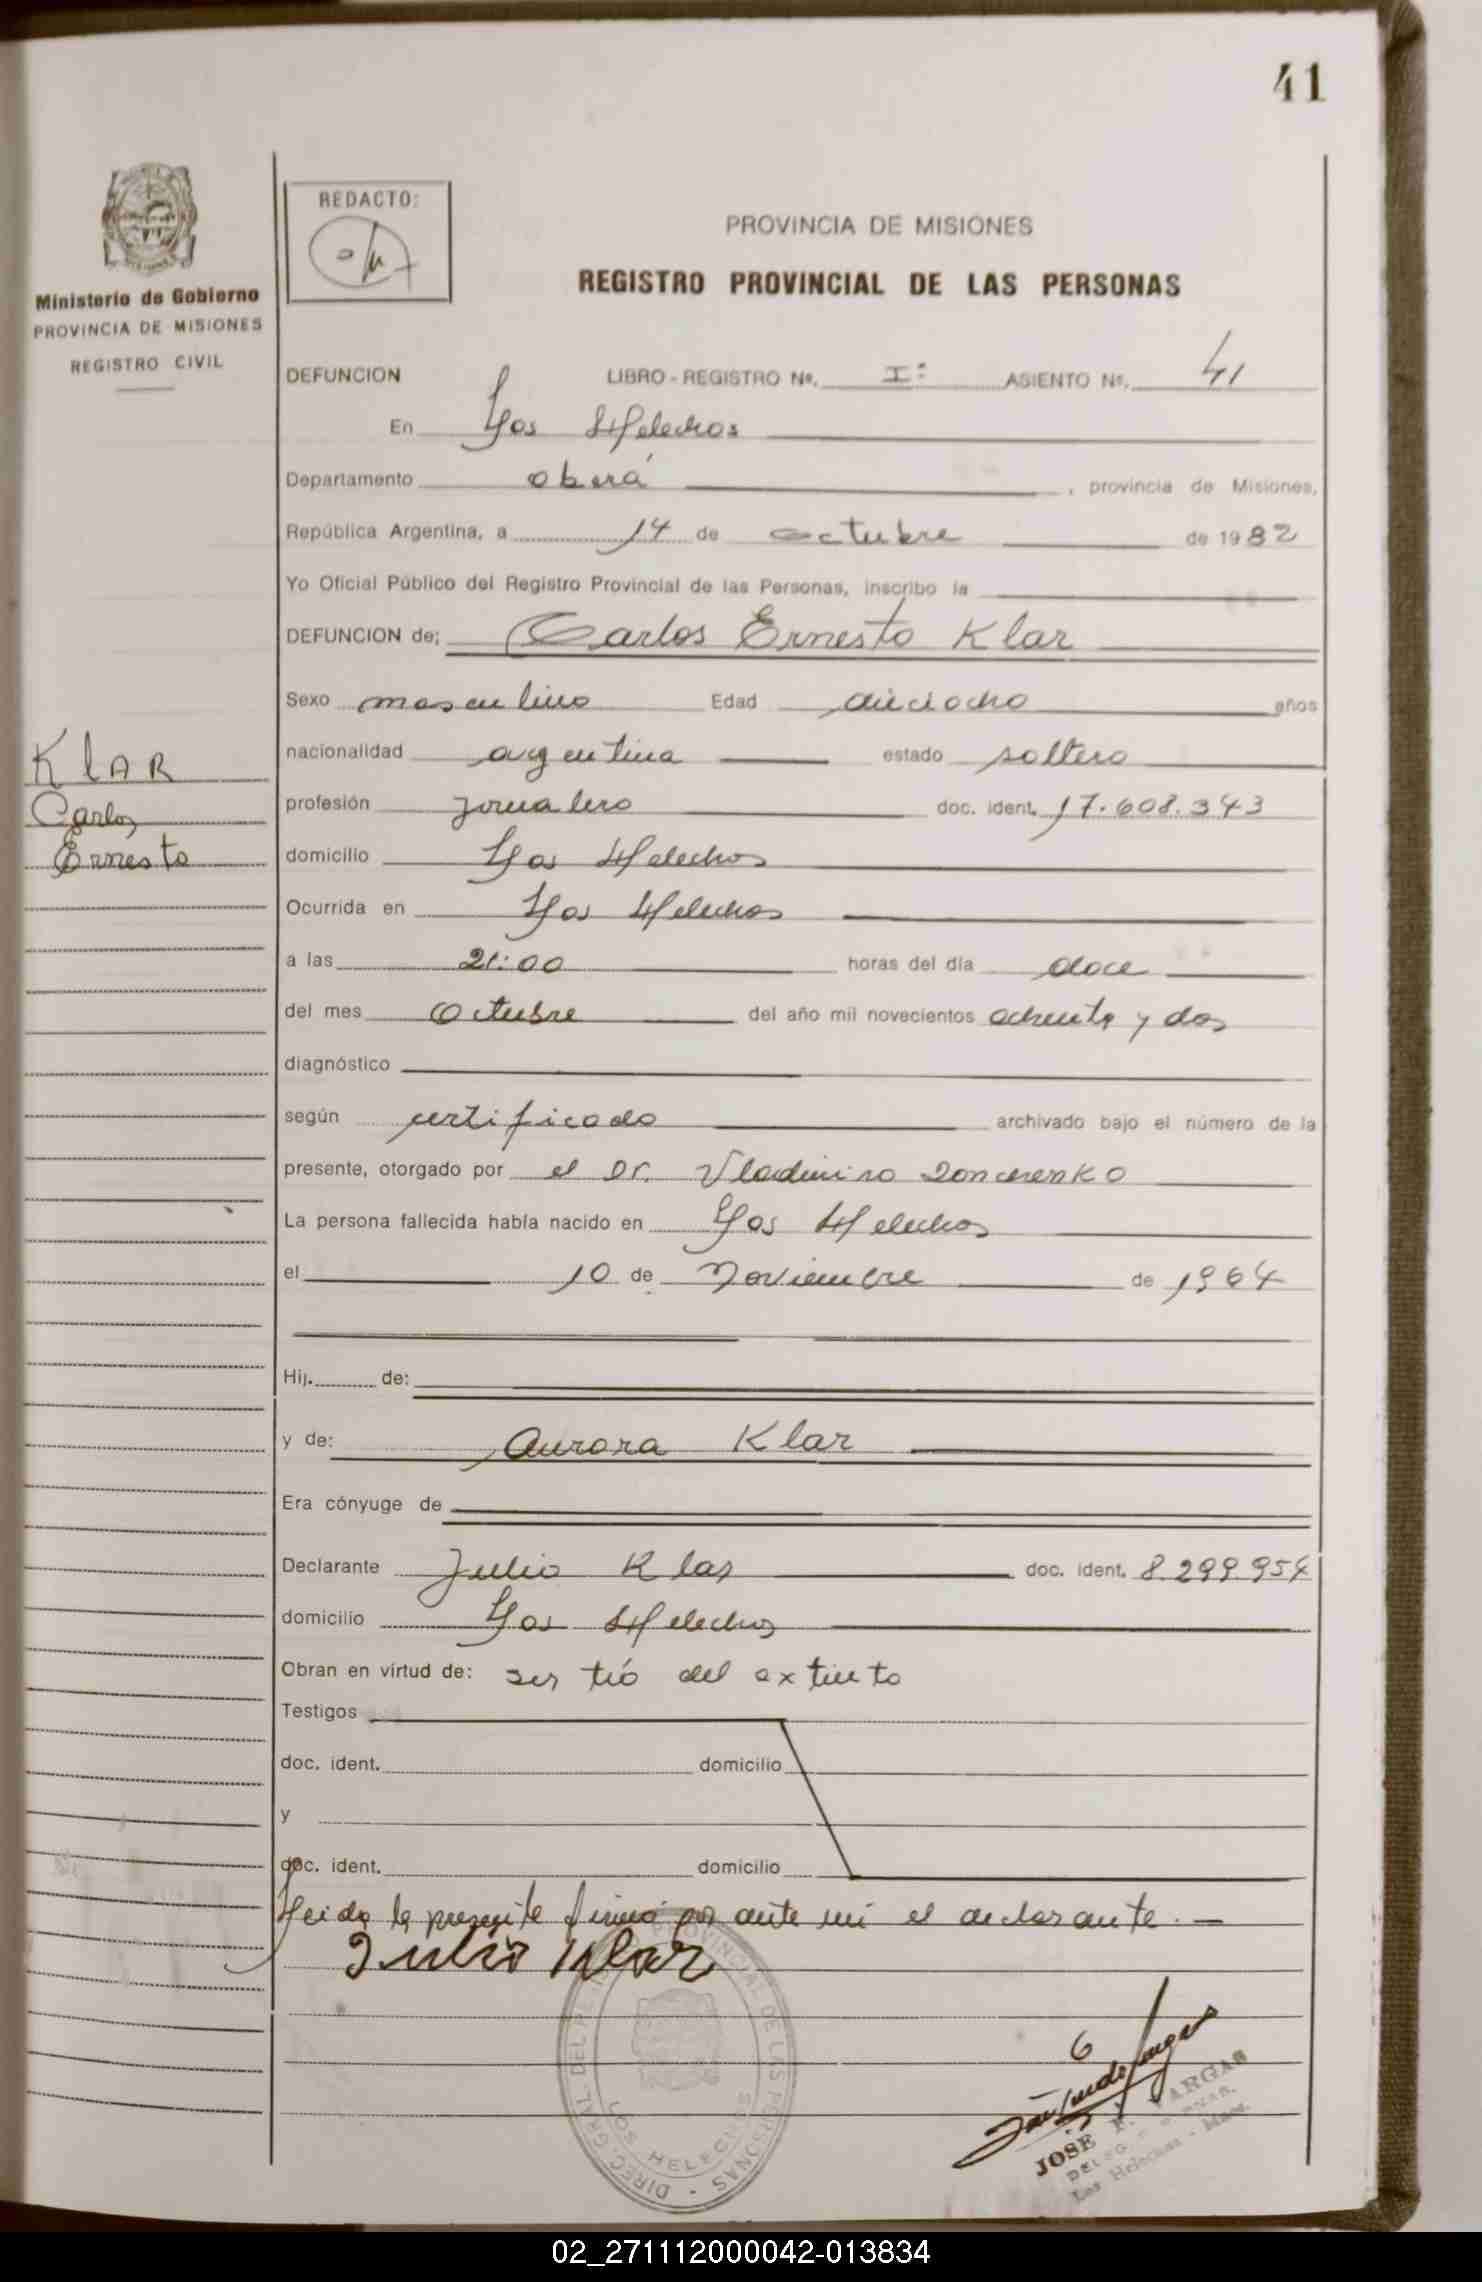 41
REDACTO:
PROVINCIA DE MISIONES
REGISTRO PROVINCIAL DE LAS PERSONAS
Ministerio de Gobierno
PROVINCIA DE MISIONES
REGISTRO CIVIL
DEFUNCION LIBRO - REGISTRO Nº. Iº ASIENTO Nº. 41
En Los Helechos
Departamento oberá, provincia de Misiones,
República Argentina, a 14 de octubre de 1982
Yo Oficial Público del Registro Provincial de las Personas, inscribo la
DEFUNCION de: Carlos Ernesto Klar
Sexo masculino Edad dieciocho años
nacionalidad argentina estado soltero
KlAR
Carlos
Ernesto
profesión Jornalero doc. ident. 17.608.343
domicilio Los Helechos
Ocurrida en Los Helechos
a las 21:00 horas del día doce
del mes Octubre del año mil novecientos ochenta y dos
diagnóstico
según certificado archivado bajo el número de la
presente, otorgado por el Dr. Vladimiro
La persona fallecida había nacido en Los Helechos
el 10 de Noviembre de 1964
Hij. de:
y de: Aurora Klar
Era cónyuge de
Declarante Julio Klar doc. ident. 8.299.954
domicilio Los Helechos
Obran en virtud de: ser tío del extinto
Testigos
doc. ident. domicilio
y
doc. ident. domicilio
Leida la presente firmó por ante mi el declarante.—
Julio Klar
DIREC. GRAL. DEL REG. PROVINCIAL DE LAS PERSONAS
LOS HELECHOS
6
JOSE F. VARGAS
Los Helechos - Mnes.
02_271112000042-013834